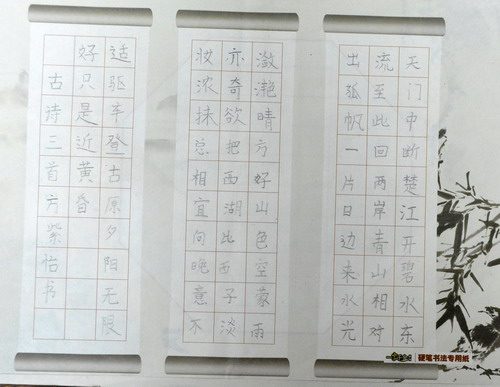 天门中断楚江开碧水东
流至此回两岸青山相对
出孤帆一片日边来水光
潋滟晴方好山色空蒙雨
亦奇欲把西湖比西子淡
妆浓抹总相宜向晚意不
适驱车登古原夕阳无限
好只是近黄昏
古诗三首方紫怡书
硬笔书法专用纸